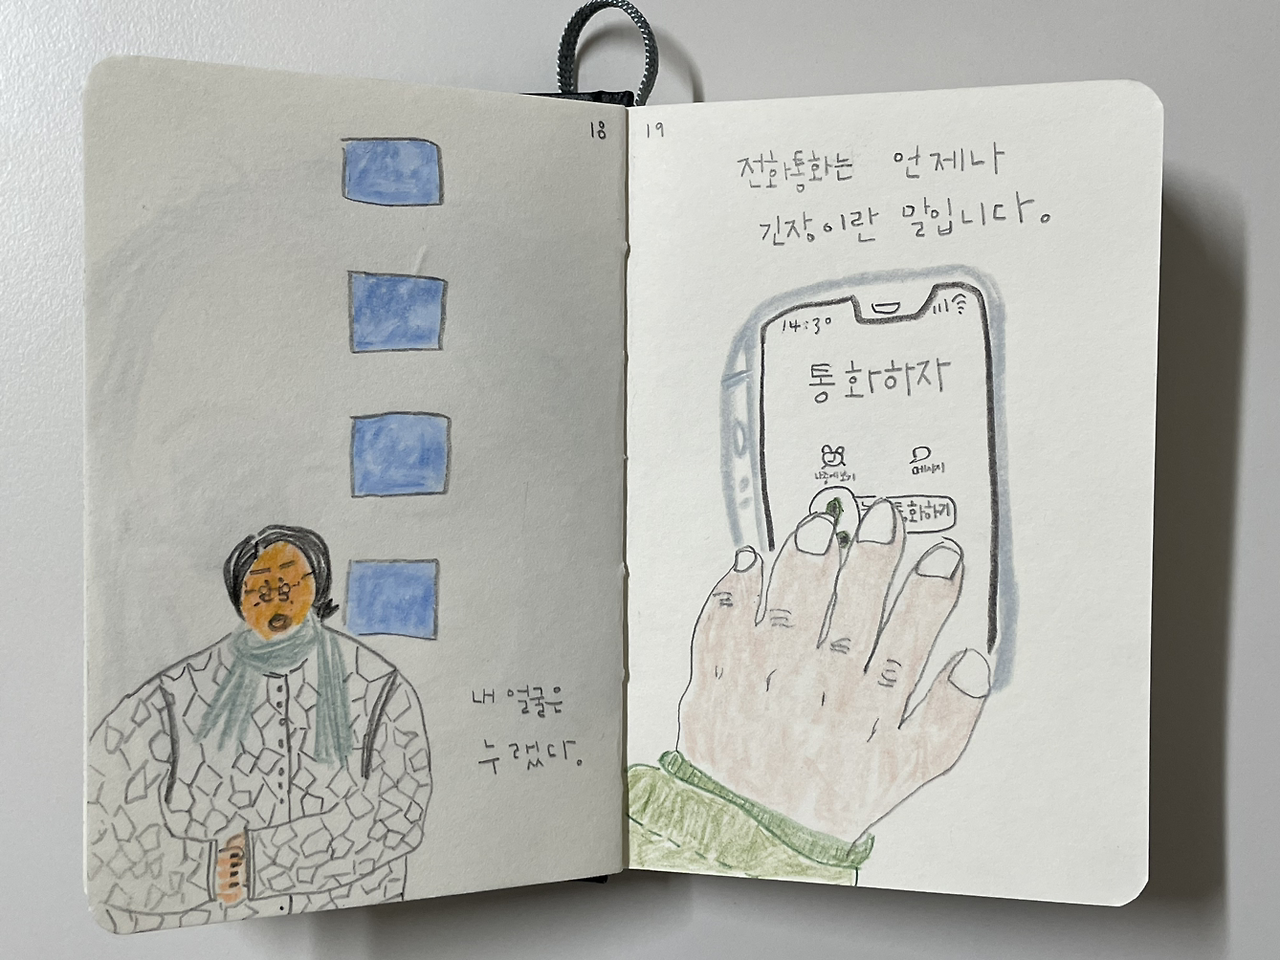 18
내 얼굴은
누렜다.
19
전화통화는 언제나
긴장이란 말입니다.
14:30
통화하자
나중에보기 메시지
통화하기